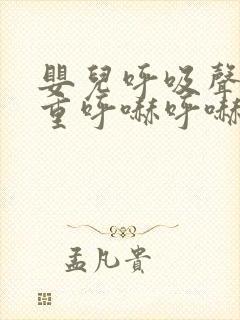 嬰兒呼吸聲
重呼嚇呼嚇
孟凡貴